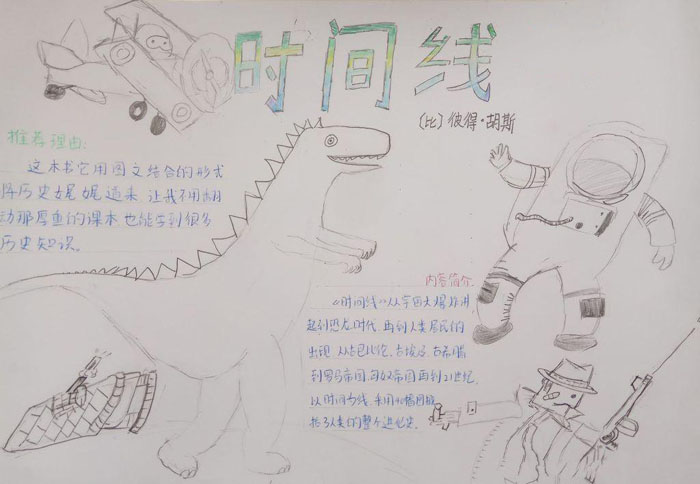 时间线
(比) 彼得·胡斯
推荐理由:
这本书它用图文结合的形式
将历史娓娓道来,让我不用翻
动那厚重的课本,也能学到很多
历史知识。
内容简介:
《时间线》从宇宙大爆炸讲
起到恐龙时代,再到人类居民的
出现,从古巴比伦、古埃及、古希腊
到罗马帝国、匈奴帝国再到21世纪,
以时间为线,采用 幅图概
括了人类的整个进化史。